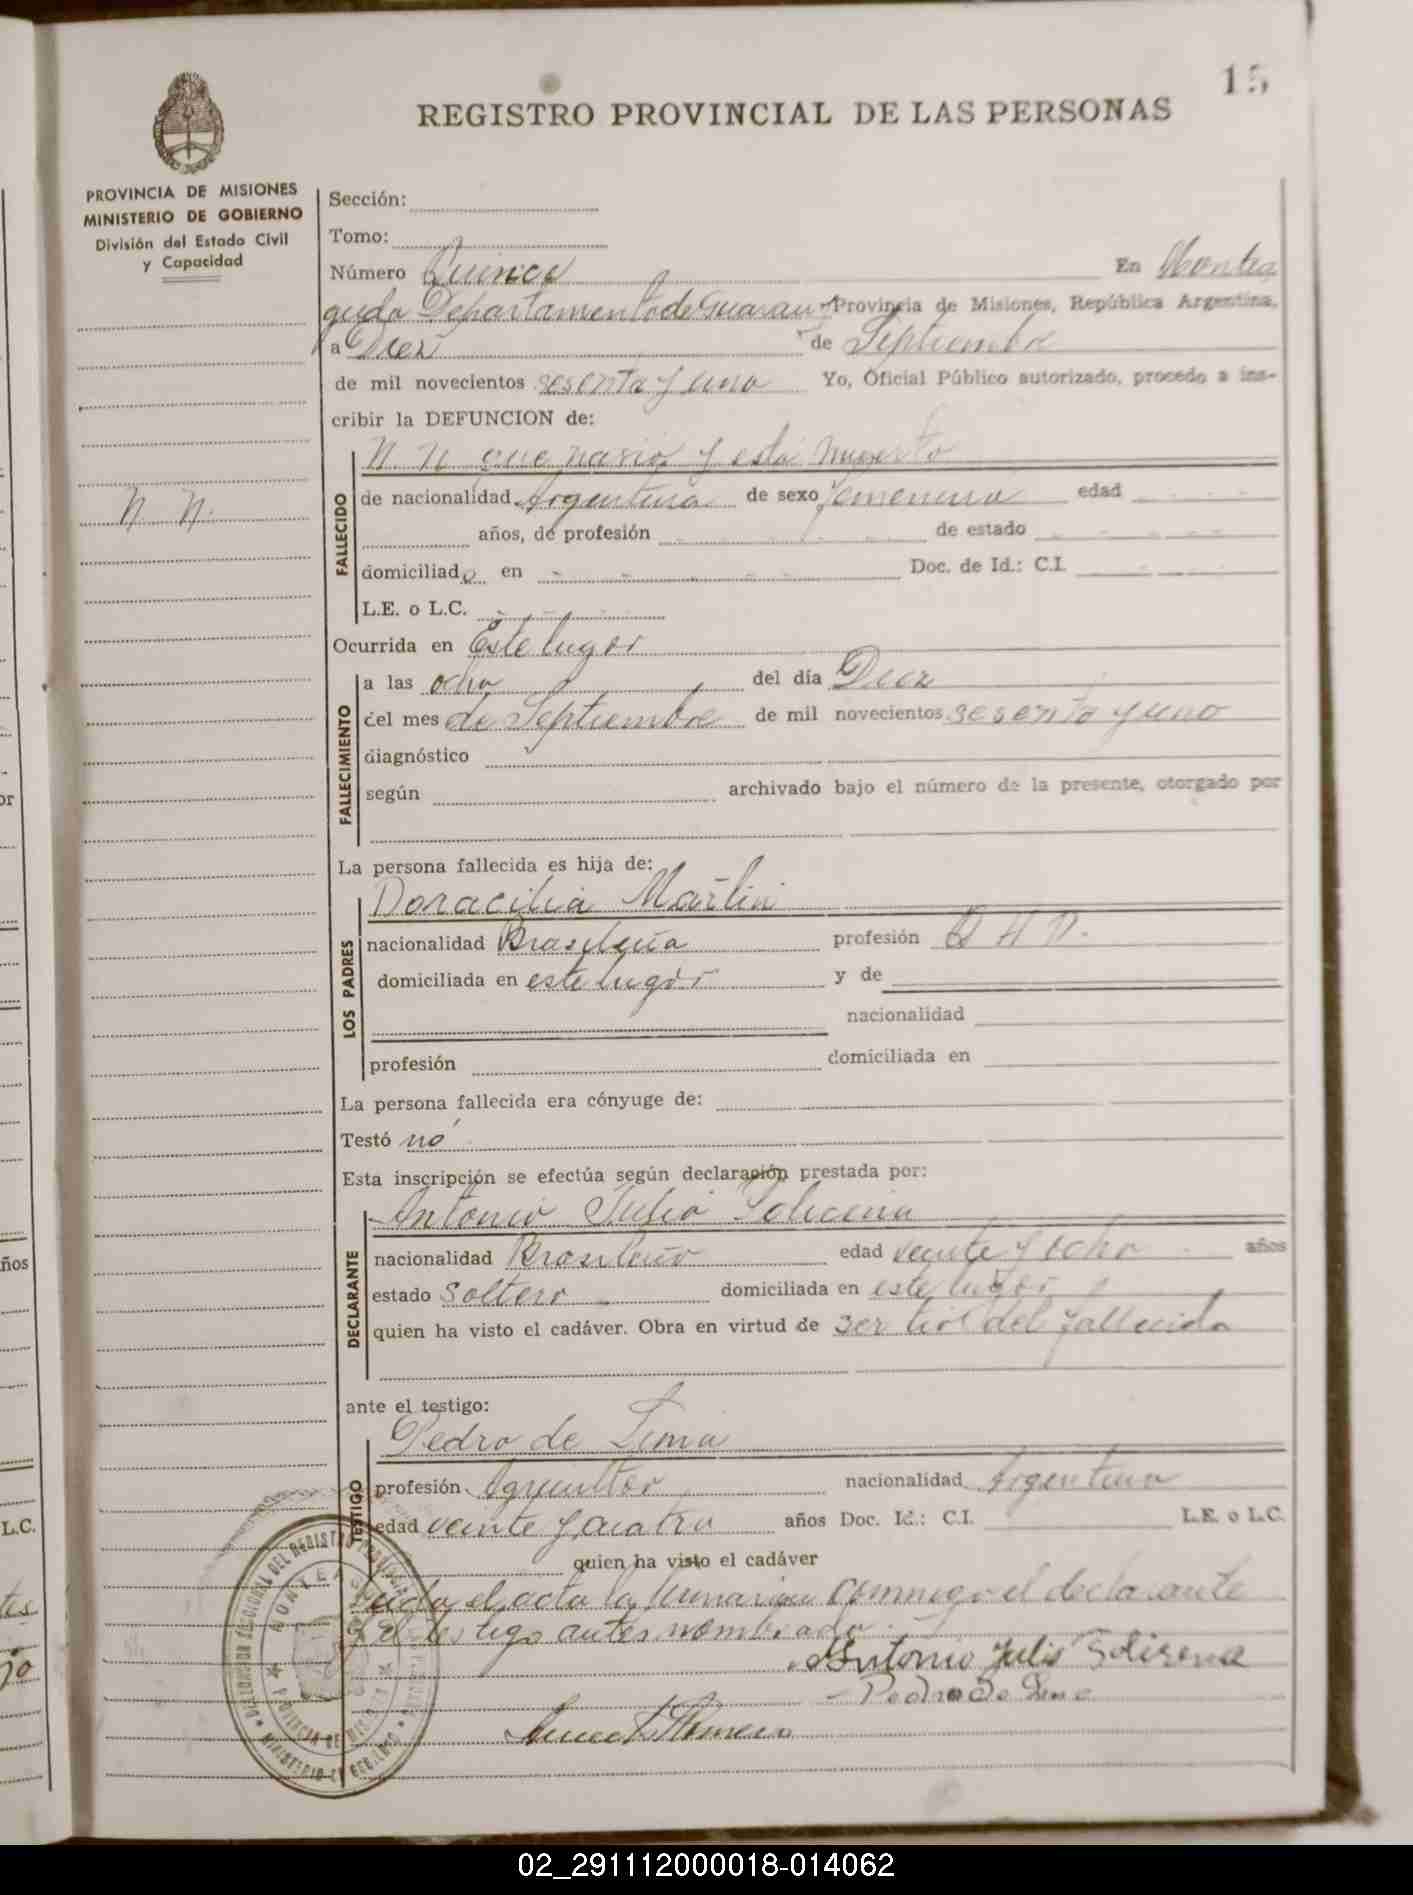 15
REGISTRO PROVINCIAL DE LAS PERSONAS
PROVINCIA DE MISIONES
MINISTERIO DE GOBIERNO
División del Estado Civil
y Capacidad
N. N.
Sección:
Tomo:
Número Quince En Montea
gudo Departamento de Guaraní Provincia de Misiones, República Argentina,
a Diez de Septiembre
de mil novecientos sesenta y uno Yo, Oficial Público autorizado, procedo a ins-
cribir la DEFUNCION de:
N. N. que nacio y está muerto
FALLECIDO
de nacionalidad Argentina de sexo femenino edad
años, de profesión de estado
domiciliado en Doc. de Id.: C.I.
L.E. o L.C.
Ocurrida en Este lugar
FALLECIMIENTO
a las ocho del día Diez
del mes de Septiembre de mil novecientos sesenta y uno
diagnóstico
según archivado bajo el número de la presente, otorgado por
La persona fallecida es hija de:
LOS PADRES
Doracilia Martin
nacionalidad Brasileña profesión Q H D.
domiciliada en este lugar y de
nacionalidad
profesión domiciliada en
La persona fallecida era cónyuge de:
Testó no
Esta inscripción se efectúa según declaración prestada por:
DECLARANTE
Antonio Julio
nacionalidad Brasileño edad veinte y ocho años
estado Soltero domiciliada en este lugar
quien ha visto el cadáver. Obra en virtud de ser tio del fallecido
ante el testigo:
TESTIGO
Pedro de Lima
profesión Agricultor nacionalidad Argentino
edad veinte y cuatro años Doc. Id.: C.I. L.E. o L.C.
quien ha visto el cadáver
el acta la conmigo el declarante
y el testigo antes nombrado.
Antonio Julio
Pedro de Lima
Romero
02_291112000018-014062